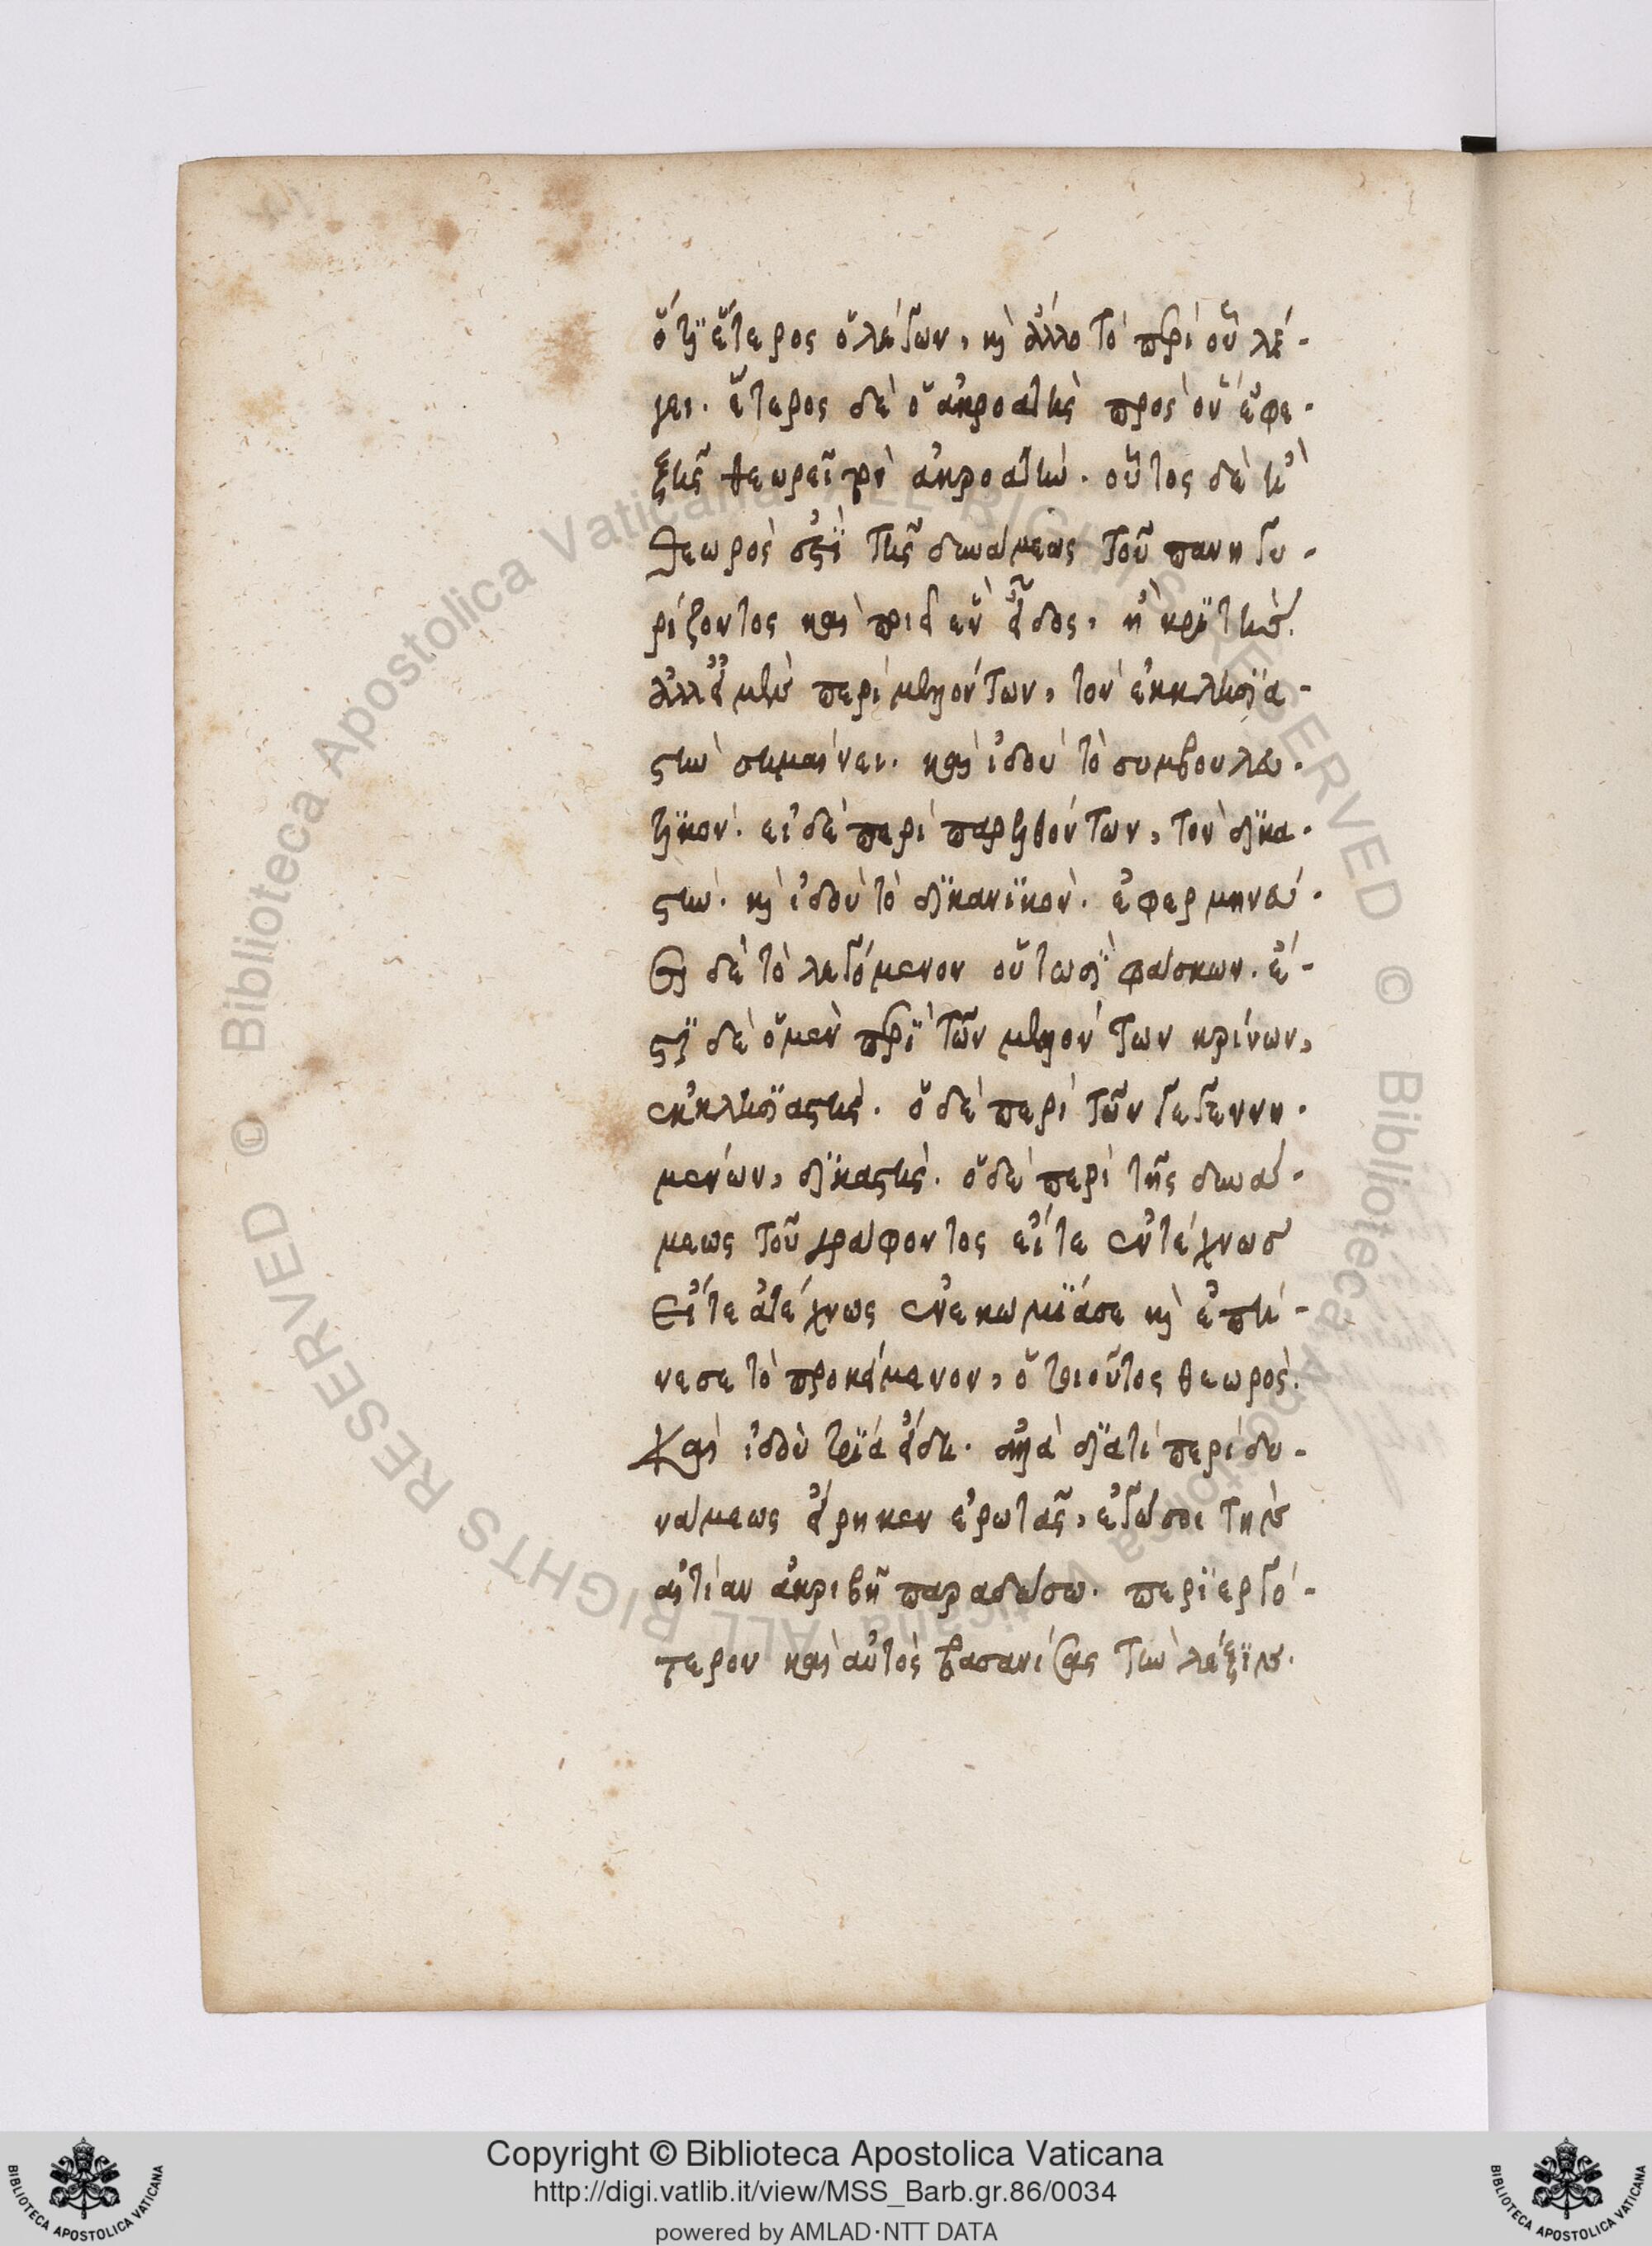 ὅτι ἕτερος ὁ λέγων, καὶ ἄλλο τὸ περὶ οὗ λέ-
γει. ἕτερος δὲ ὁ ἀκροατὴς πρὸς ὃν ἐφε-
ξῆς θεωρεῖ τὸν ἀκροατήν. οὗτος δὲ ἢ
θεωρός ἐστι τῆς δυνάμεως τοῦ πανηγυ-
ρίζοντος καὶ τρία ἓν εἶδος, ἢ κριτήν.
ἀλλ' εἰ μὲν περὶ μελλόντων, τὸν ἐκκλησια-
στὴν σημαίνει. καὶ ἰδοὺ τὸ συμβουλευ-
τικόν. εἰ δὲ περὶ παρελθόντων, τὸν δικα-
στήν. καὶ ἰδοὺ τὸ δικανικόν. ἐφερμηνεύ-
ει δὲ τὸ λεγόμενον οὑτωσὶ φάσκων. ἔ-
στι δὲ ὁ μὲν περὶ τῶν μελλόντων κρίνων,
ἐκκλησιαστής. ὁ δὲ περὶ τῶν γεγεννη-
μένων, δικαστής. ὁ δὲ περὶ τῆς δυνά-
μεως τοῦ γράφοντος εἴτε ἐντέχνως
εἴτε ἀτέχνως ἐνεκωμίασε καὶ ἐπῄ-
νεσε τὸ προκείμενον, ὁ τοιοῦτος θεωρός.
Καὶ ἰδοὺ τρία εἴδη. ἀλλὰ διατί περὶ δυ-
νάμεως εἴρηκεν ἐρωτᾷς, ἐγώ σοι τὴν
αἰτίαν ἀκριβῆ παραδώσω. περιεργό-
τερον καὶ αὐτὸς βασανίσας τὴν λέξιν.
Copyright © Biblioteca Apostolica Vaticana
http://digi.vatlib.it/view/MSS_Barb.gr.86/0034
powered by AMLAD·NTT DATA